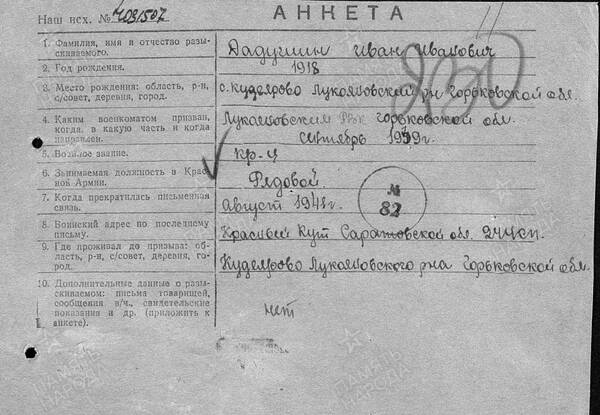 Наш исх. №
АНКЕТА
1. Фамилия, имя и отчество разы-
скиваемого.
Дадушкин Иван Иванович
2. Год рождения.
1918
3. Место рождения: область, р-н,
с/совет, деревня, город.
с. Кудеярово Лукояновский р-н Горьковской обл.
4. Каким военкоматом призван,
когда, в какую часть и когда
направлен.
Лукояновским Рвк Горьковской обл.
сентябрь 1939 г.
5. Военное звание.
кр-ц
6. Занимаемая должность в Крас-
ной Армии.
Рядовой
7. Когда прекратилась письменная
связь.
Август 1941 г.
№
82
8. Воинский адрес по последнему
письму.
Красный Кут Саратовской обл.
9. Где проживал до призыва: об-
ласть, р-н, с/совет, деревня, го-
род.
Кудеярово Лукояновского р-на Горьковской обл.
10. Дополнительные данные о разы-
скиваемом: письма товарищей,
сообщения в/ч., свидетельские
показания и др. (приложить к
анкете).
нет
ПАМЯТЬ
НАРОДА